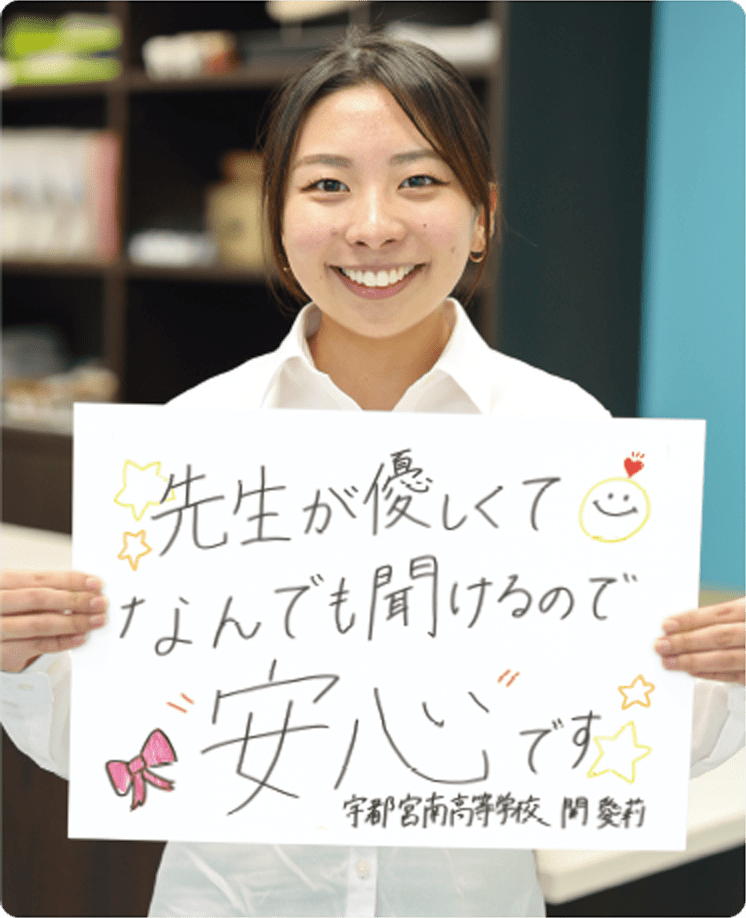 先生が優しくて
なんでも聞けるので
"安心"です
宇都宮南高等学校、関 愛莉